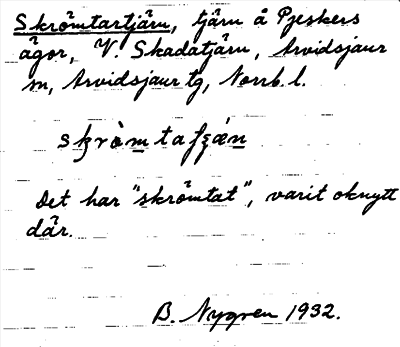 Skrömtartjärn, tjärn å Pjeskers
ägor, V. Skadatjärn, Arvidsjaur
sn, Arvidsjaur tg, Norrb. l.
Det har "skrömtat", varit oknytt
där.
B. Nygren 1932.